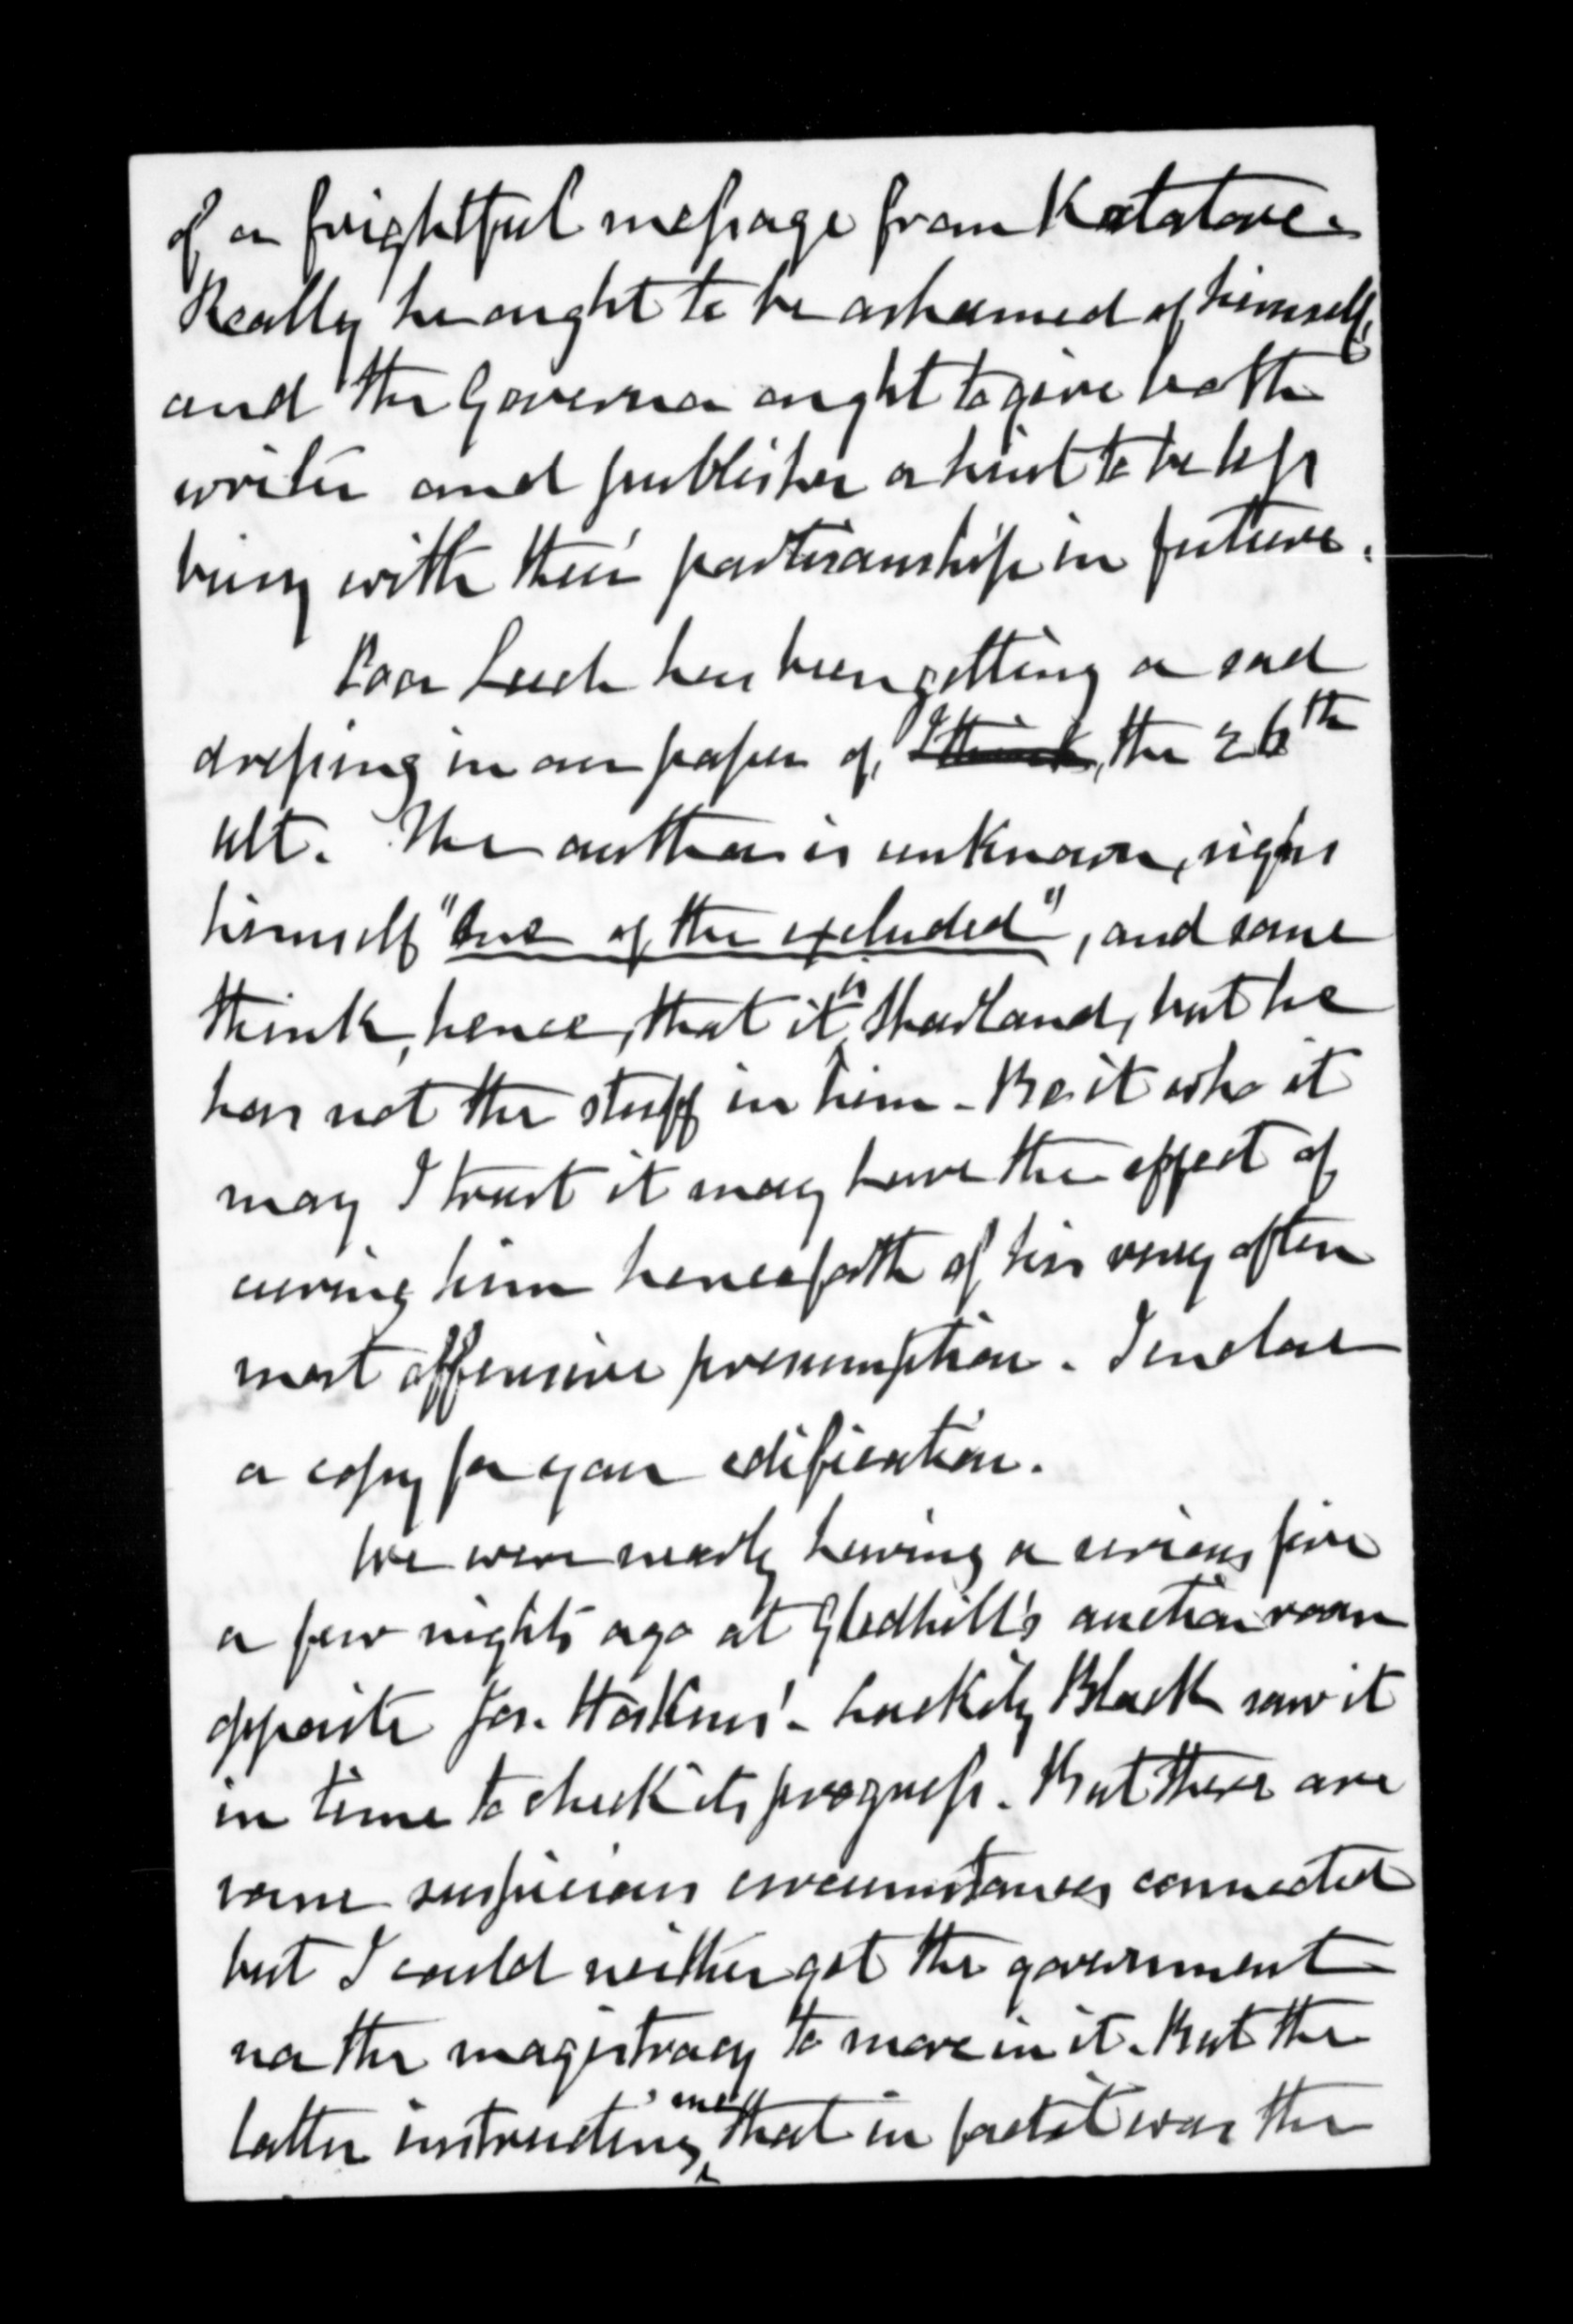 of a frightful message from Katatore.
Really he ought to be ashamed of himself,
and the Governor ought to give both
writer and publisher a hint to be less
busy with their partisanship in future.
Poor Leech has been getting a sad
dressing in our paper of, I think, the 26th
ult. The author is unknown, signs
himself "One of the excluded", and some
think, hence, that it is Sharland, but he
has not the stuff in him. Be it who it
may I trust it may have the effect of
curing him henceforth of his very often
most offensive presumption. I enclose
a copy for your edification.
We were nearly having a serious fire
a few nights ago at Gledhill's auction room
opposite Jos. Hoskins'. Luckily Black saw it
in time to check its progress. But there are
some suspicious circumstances connected
but I could neither get the government
nor the magistracy to move in it. But the
latter instructing me that in fact it was the